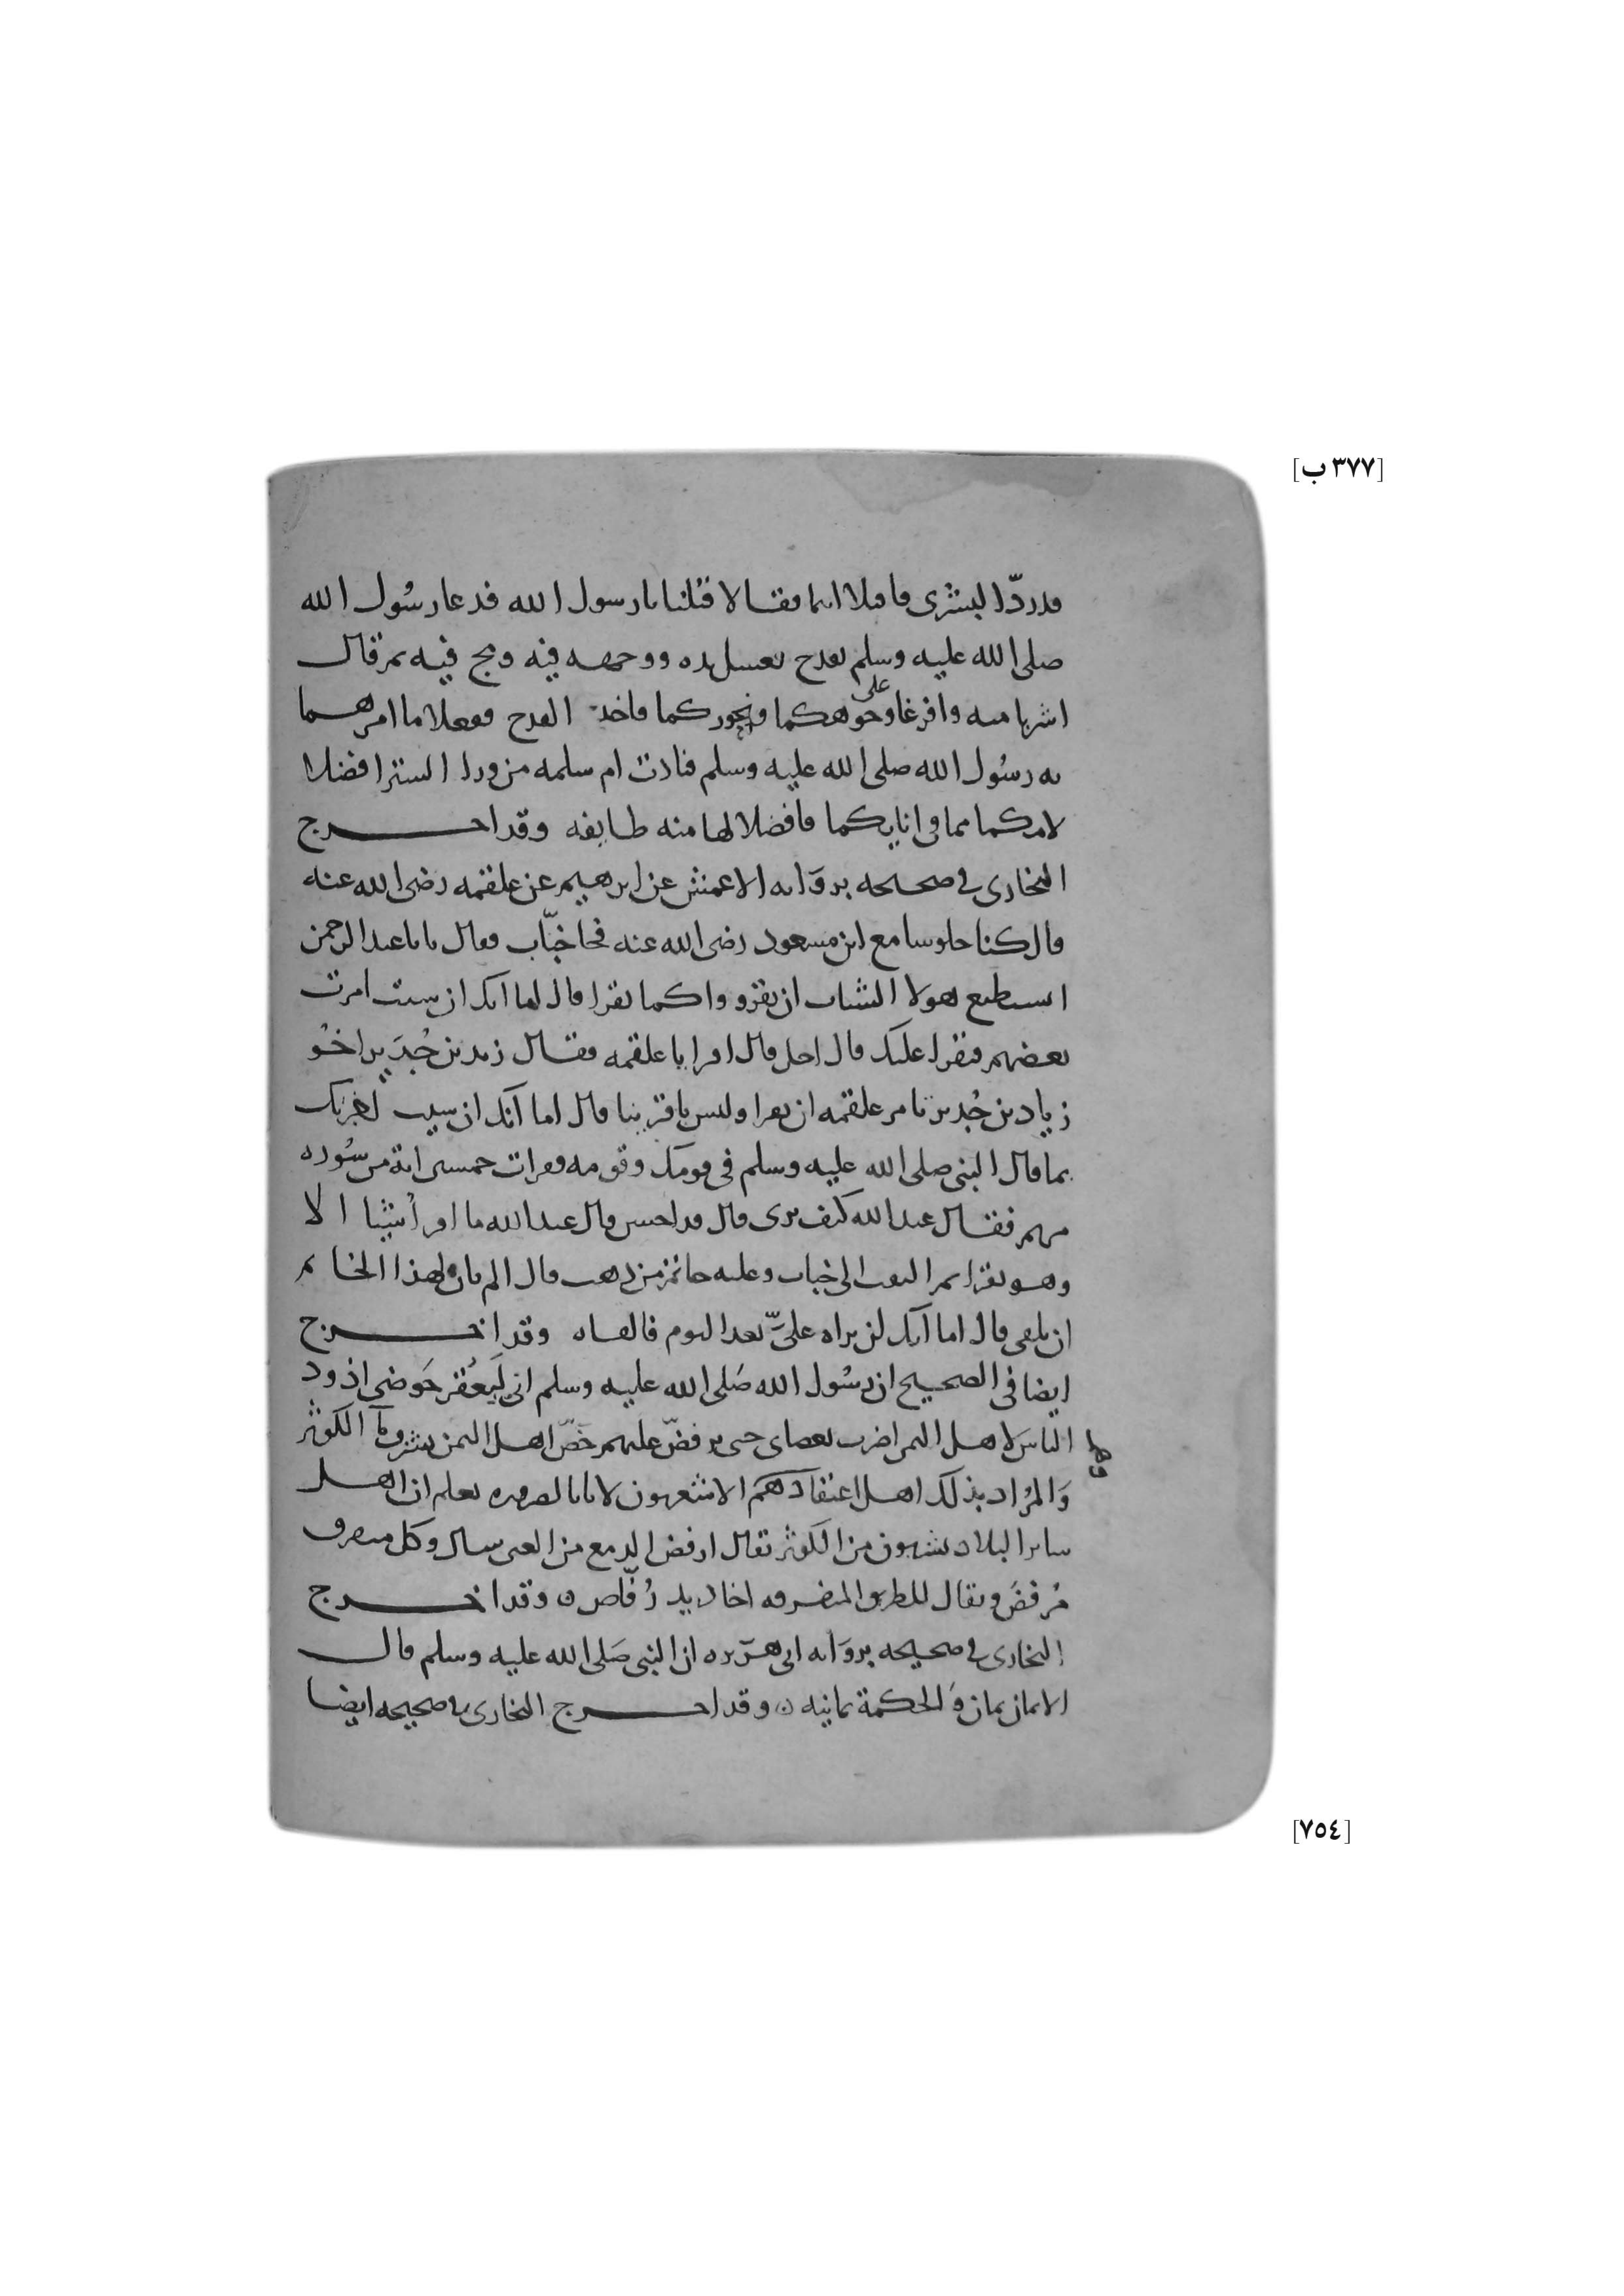 [٣٧٧ ب]
قد ردّ البشرى فاقبلا انتما فقالا قبلنا يا رسول الله فدعا رسُول الله
صلى الله عليه وسلم بقدح فغسل يده ووجهه فيه ومج فيه ثم قال
اشربا منه وافرغا على وجوهكما ونحوركما فاخذ القدح ففعلا ما امرهما
به رسُول الله صلى الله عليه وسلم فنادت ام سلمه من ورا الستر افضلا
لامكما مما في انايكما فافضلا لها منه طايفه وقد اخرج
البخارى في صحيحه بروَايه الاعمش عن ابرهيم عن علقمه رضى الله عنه
قال كنا جلوسا مع ابن مسعود رضى الله عنه فجا خبّاب فقال يا با عبد الرحمن
ايستطيع هولا الشباب ان يقروا كما تقرا قال اما انك ان شيت امرت
بعضهم فيقرا عليك قال اجل قال اقرا يا علقمه فقال زيد بن حُدَير اخُو
زياد بن حُدير تامر علقمه ان يقرا وليس باقرينا قال اما انك ان شيت لخبرتك
بما قال النبى صلى الله عليه وسلم في قومك وقومه فقرات خمسين اية من سُوره
مريم فقال عبد الله كيف ترى قال قد احسن قال عبد الله ما اقرأ شيئا الا
وهو يقرا ثم التفت الى خباب وعليه خاتم من ذهب قال الم يان لهذا الخاتم
ان يلقى قال اما انك لن تراه علىّ بعد اليوم فالقاه وقد اخرج
ايضا في الصحيح ان رسُول الله صَلى الله عليه وسلم انى لَبِعُقر حَوضى اذود
الناسَ لاهل اليمن اضرب بعصاى حتى يرفضّ عليهم خصّ اهل اليمن بشرف ماء الكوثر
وَالمرُاد بذلك اهل اعتقادهم الاشعريون لانا بالضروره نعلم ان اهل
ساير البلاد يشربون من الكوثر يقال ارفض الدمع من العين سال وكل متفرق
مُرفضَ ويقال للطريق المتفرقه اخاديد رُفّاض ٥ وقد اخرج
البخارى في صحيحه بروَايه ابى هريره ان النبى صَلى الله عليه وسلم قال
الايمان يمان وَالحكمة يمانيه ٥ وقد اخرج البخارى في صحيحه ايضا
[٧٥٤]